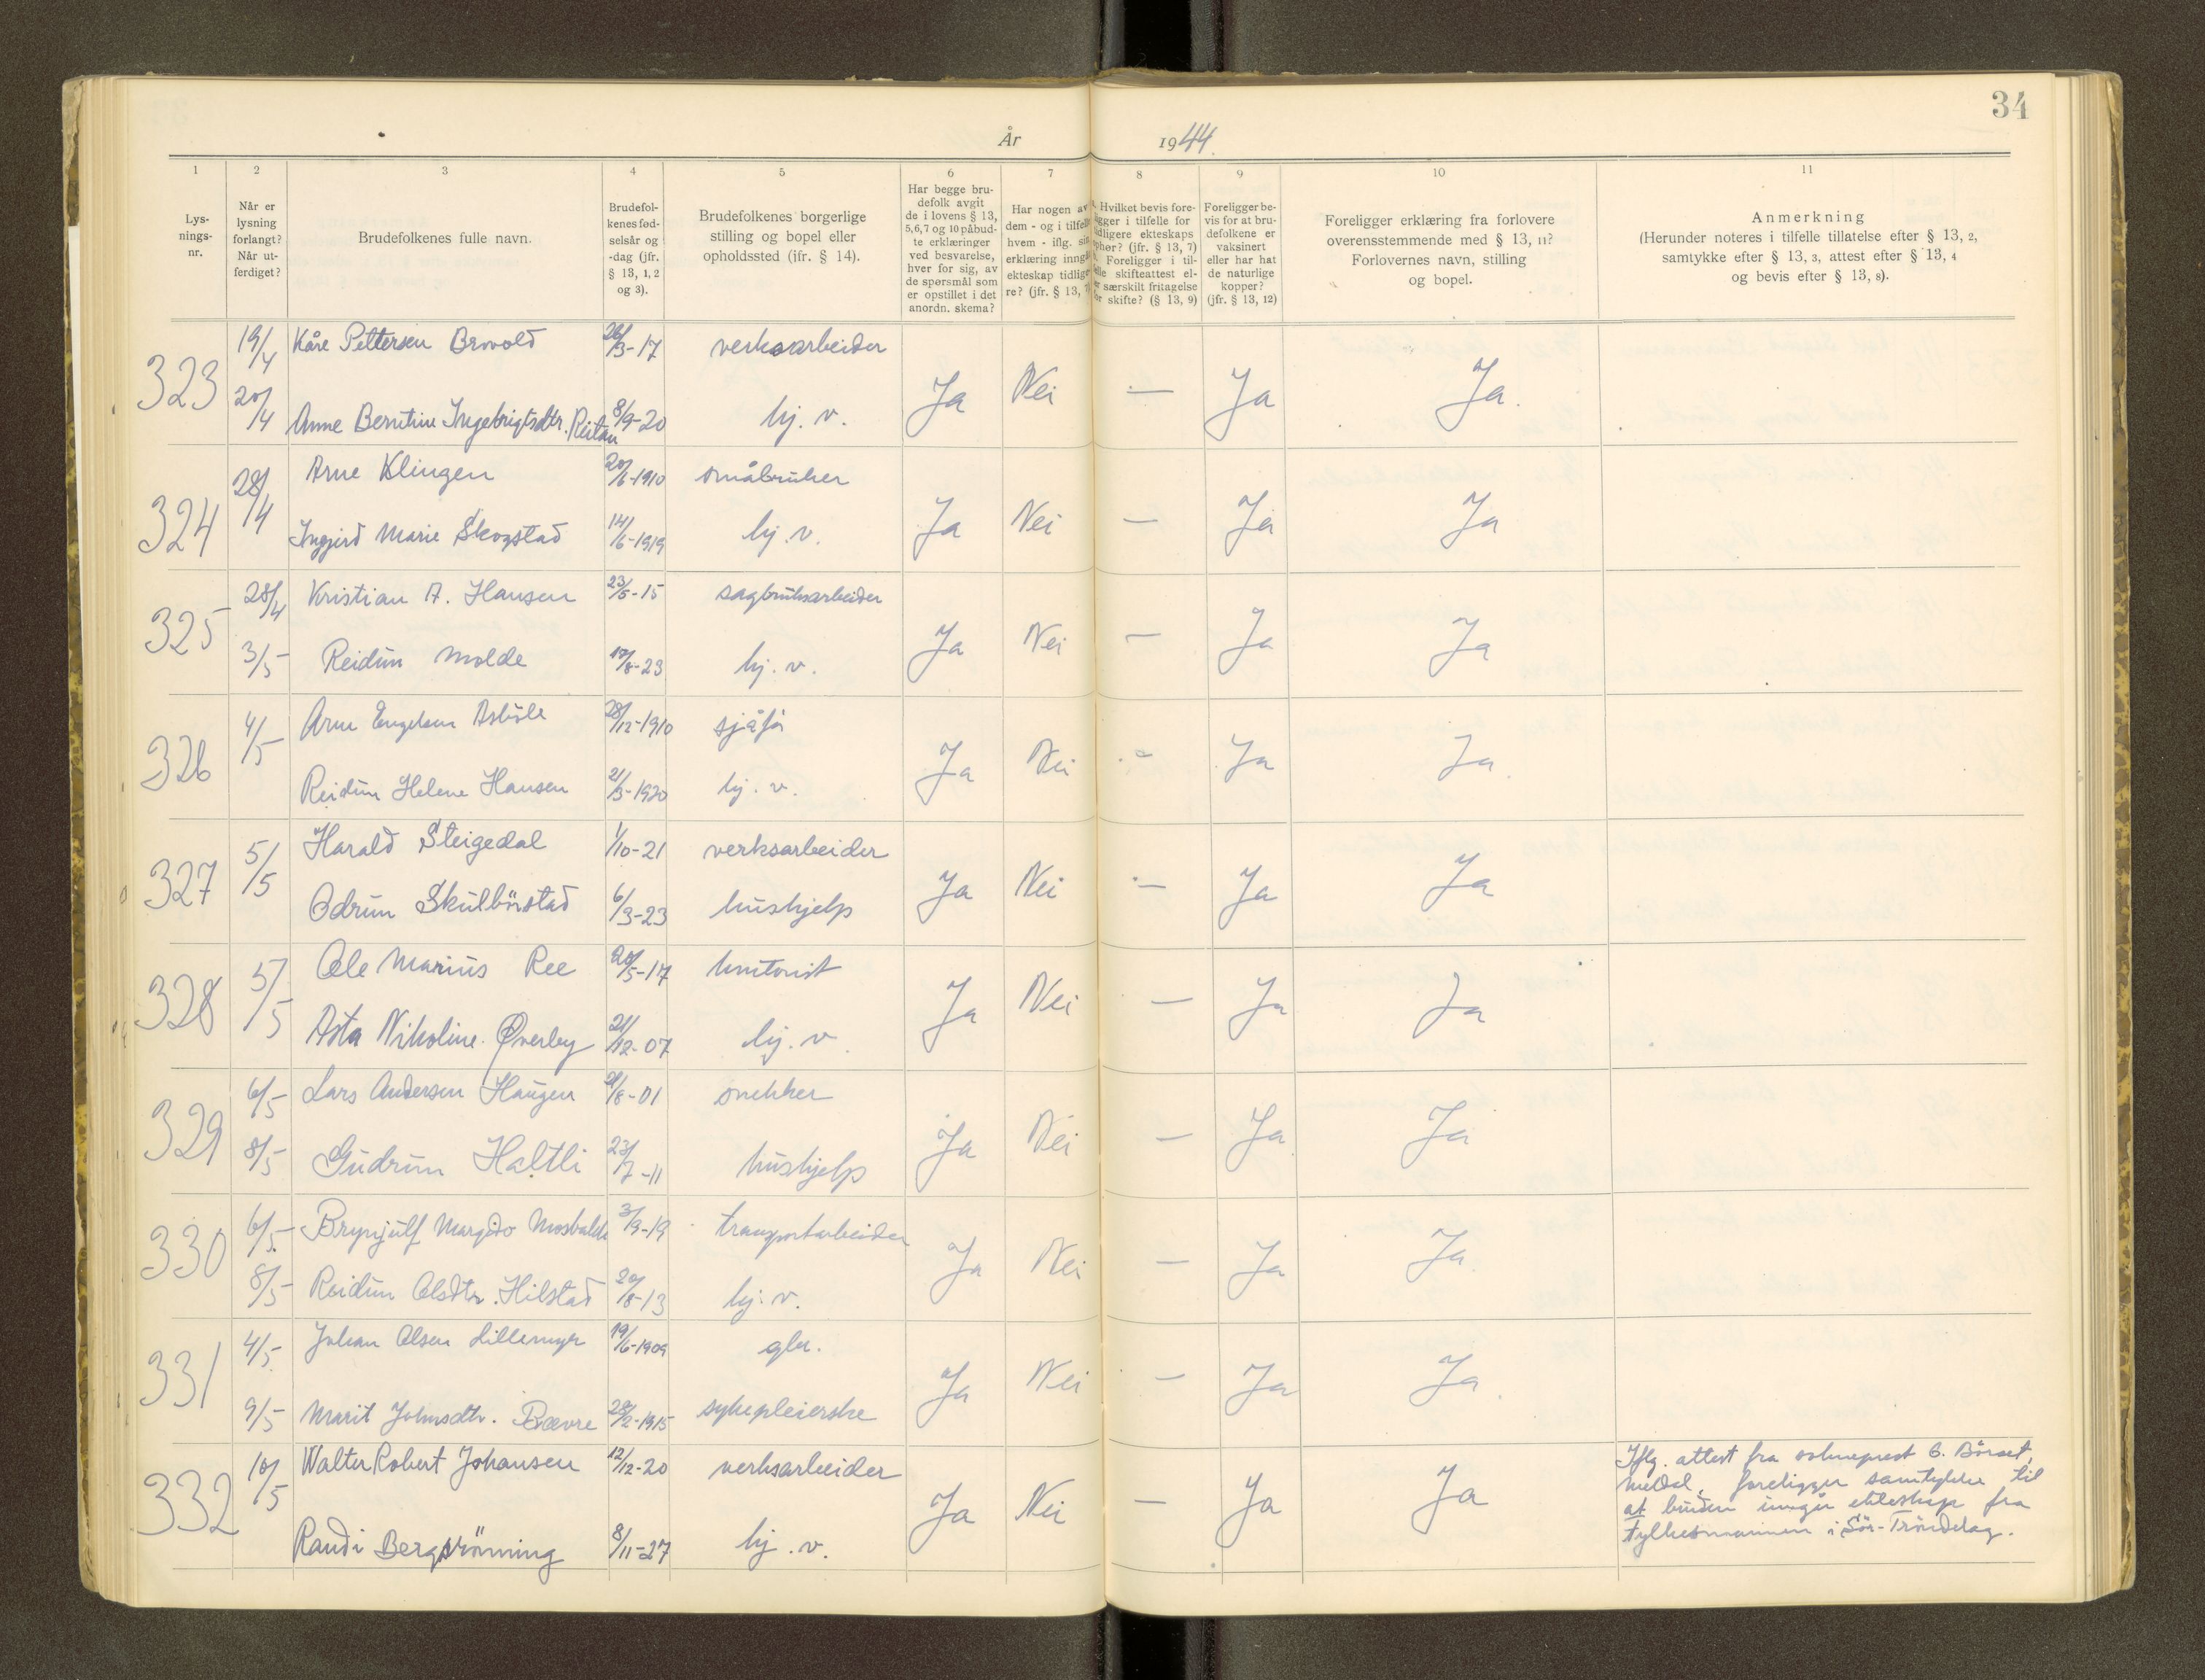 34
År 1944.
1 2 3 4 5 6 7 8 9 10 11
Lys-
nings-
nr.
Når er
lysning
forlangt?
Når ut-
ferdiget?
Brudefolkenes fulle navn.
Brudefol-
kenes fød-
selsår og
-dag (jfr.
§ 13, 1, 2
og 3).
Brudefolkenes borgerlige
stilling og bopel eller
opholdssted (ifr. § 14).
Har begge bru-
defolk avgit
de i lovens § 13,
5, 6, 7 og 10 påbud-
te erklæringer
ved besvarelse,
hver for sig, av
de spørsmål som
er opstillet i det
anordn. skema?
Har nogen av
dem - og i tilfelle
hvem - iflg. sin
erklæring inngå
ekteskap tidlige-
re? (jfr. § 13,
Hvilket bevis fore-
ligger i tilfelle for
tidligere ekteskaps
ophør? (jfr. § 13, 7)
Foreligger i til-
felle skifteattest el-
er særskilt fritagelse
for skifte? (§ 13, 9)
Foreligger be-
vis for at bru-
defolkene er
vaksinert
eller har hat
de naturlige
kopper?
(jfr. § 13, 12)
Foreligger erklæring fra forlovere
overensstemmende med § 13, 11?
Forlovernes navn, stilling
og bopel.
Anmerkning
(Herunder noteres i tilfelle tillatelse efter § 13, 2,
samtykke efter § 13, 3, attest efter § 13, 4
og bevis efter § 13, 8).
323 19/4 Kåre Pettersen Brovold 26/3-17 verksarbeider Ja Nei — Ja Ja.
20/4 Anne Berntine Ingebrigtsdtr. Reitan 8/9-20 hj. v.
324 28/4 Arne Klingen 20/6-1910 småbruker Ja Nei — Ja Ja
Ingjerd Marie Skogstad 14/6-1919 hj. v.
325 28/4 Kristian A. Hansen 23/5-15 sagbruksarbeider Ja Nei — Ja Ja
3/5 Reidun Molde /8-23 hj. v.
326 4/5 Arne Engelsen 28/12-1910 sjåfør Ja Nei - Ja Ja
Reidun Helene Hansen 21/3-1920 hj. v.
327 5/5 Harald Steigedal 1/10-21 verksarbeider Ja Nei — Ja Ja
Odrun Skulbörstad 6/3-23 hushjelp
328 5/5 Ole Marius Ree 20/5-17 kontorist Ja Nei — Ja Ja
Asta Nikoline Øverby 21/12-07 hj. v.
329 6/5 Lars Andersen Haugen 21/8-01 snekker Ja Nei — Ja Ja
8/5 Gudrun Haltli 23/7-11 hushjelp
330 6/5 Brynjulf Margido 3/9-19 transportarbeider Ja Nei — Ja Ja
8/5 Reidun Olsdtr. Hilstad 20/8-13 hj. v.
331 4/5 Johan Olsen Lillemyr 19/6-1909 gbr. Ja Nei — Ja Ja
9/5 Marit Johnsdtr. Bævre 28/2-1915 sykepleierske
332 10/5 Walter Robert Johansen 12/12-20 verksarbeider Ja Nei — Ja Ja
Randi Bergsrönning 8/11-27 hj. v.
Iflg. attest fra sokneprest B. Börset,
Meldal, foreligger samtykke til
at bruden inngår ekteskap fra
fylkesmannen i Sör-Tröndelag.